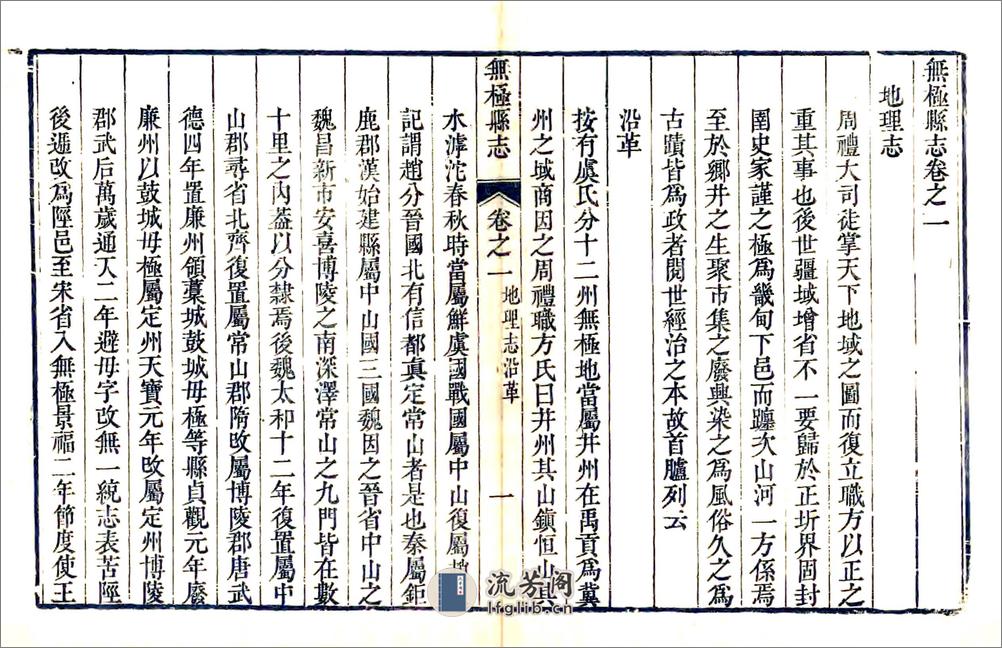 無極縣志卷之一
地理志
周禮大司徒掌天下地域之圖而復立職方以正之
重其事也後世疆域增省不一要歸於正圻界固封
圉史家謹之極爲畿甸下邑而躔次山河一方係焉
至於鄉井之生聚市集之廢興染之爲風俗久之爲
古蹟皆爲政者閱世經治之本故首臚列云
沿革
按有虞氏分十二州無極地當屬并州在禹貢爲冀
州之域商因之周禮職方氏曰并州其山鎭恒山其
水滹沱春秋時當屬鮮虞國戰國屬中山復屬趙
無極縣志
卷之一
地理志沿革
一
記謂趙分晉國北有信都眞定常山者是也秦屬鉅
鹿郡漢始建縣屬中山國三國魏因之晉省中山之
魏昌新市安喜博陵之南深澤常山之九門皆在數
十里之內蓋以分隸焉後魏太和十二年復置屬中
山郡尋省北齊復置屬常山郡隋改屬博陵郡唐武
德四年置廉州領藁城鼓城毋極等縣貞觀元年廢
廉州以鼓城毋極屬定州天寶元年改屬定州博陵
郡武后萬歲通天二年避毋字改無一統志表苦陘
後遞改爲陘邑至宋省入無極景福二年節度使王
流芳阁
lfglib.cn